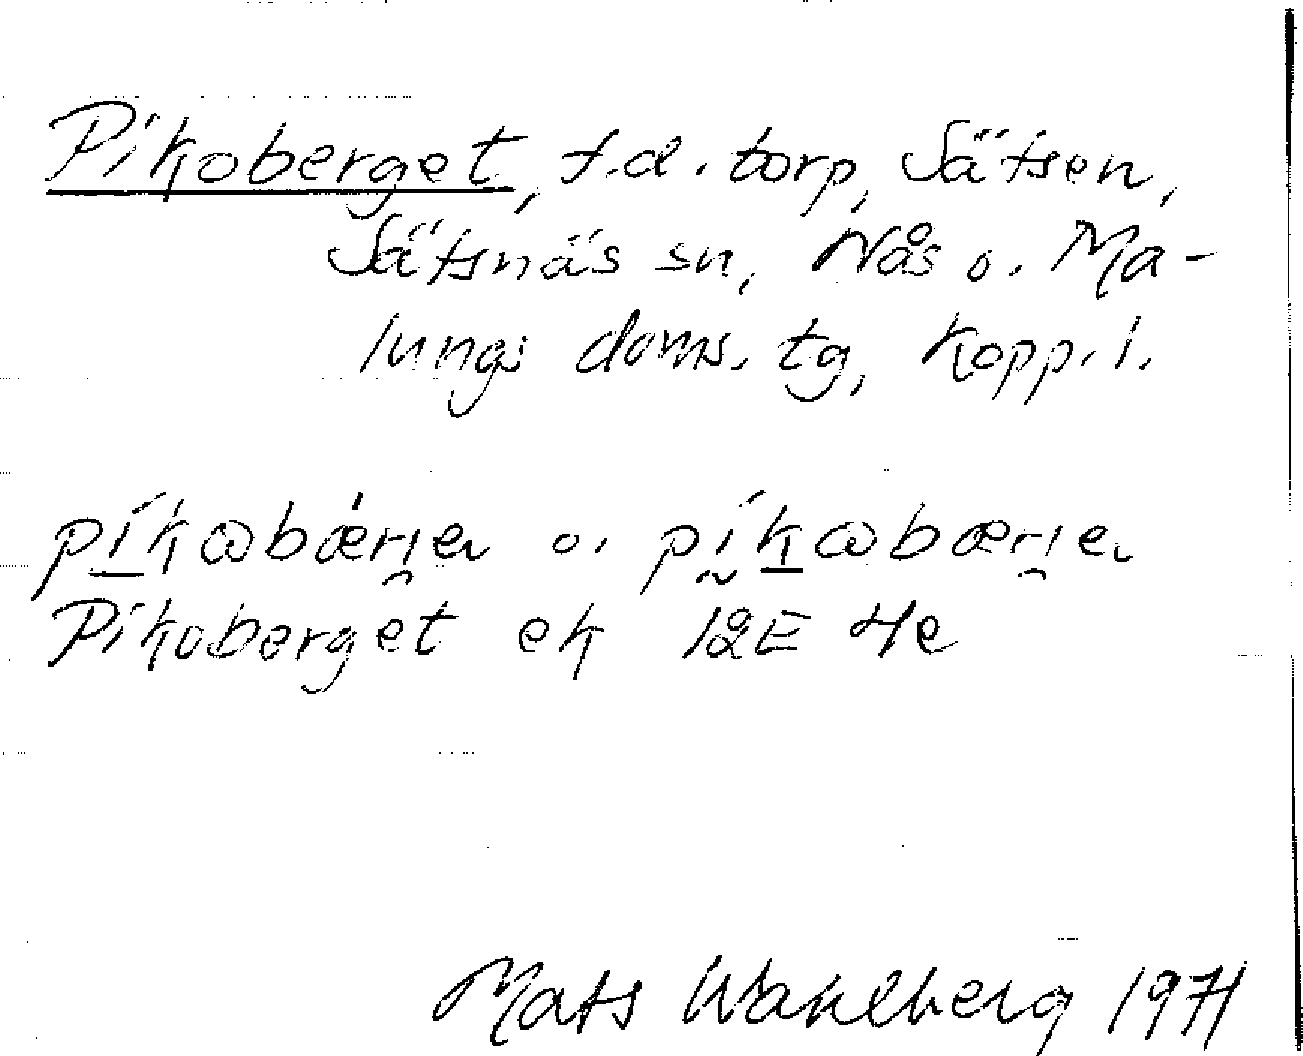 Pikoberget, f.d. torp, Sätsen,
Sätsnäs sn, Nås o. Ma-
lungs doms. tg, Kopp. l.
píkωbǽrje o. píkωbærje
Pikoberget ek 12E 4e
Mats Wahlberg 1971